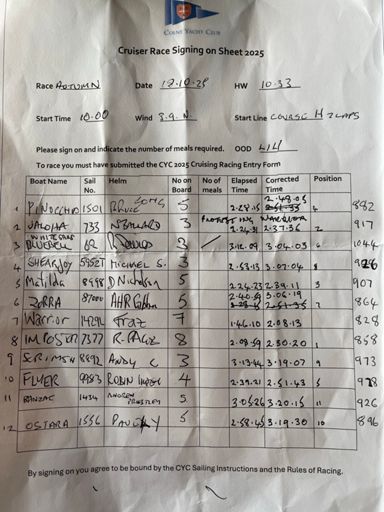 COLNE YACHT CLUB
Cruiser Race Signing on Sheet 2025
Race AUTUMN Date 12.10.25 HW 10.33
Start Time 10.00 Wind N. Start Line COURSE H 2 LAPS
Please sign on and indicate the number of meals required. OOD
To race you must have submitted the CYC 2025 Cruising Racing Entry Form
Boat Name Sail No. Helm No on Board No of meals Elapsed Time Corrected Time Position
1 PINOCCHIO 1501 5 2.28.15 2.48.05 4 882
2 JALOMA 733 3 PROTESTING WARRIOR 2.24.31 2.37.36 2 917
3 WHITE 3 3.12.09 3.04.03 6 1044
4 SHEARJOY 5952T MICHAEL S. 3 2.53.13 3.07.04 8
5 Matilda 8998 D Nicholson 5 2.24.23 2.39.11 3 907
6 ZORRA 8700 5 2.40.59 3.06.19 7 864
7 Warrior 1429L 7 1.46.10 2.08.13 828
8 IMPOSTER 7377 R. PAGE 8 2.08.59 2.30.20 1 858
9 8892 ANDY C 3 3.13.44 3.19.07 9 973
10 FLYER 9983 ROBIN 4 2.39.21 2.51.43 5 928
11 BANZAI 1434 ANDREW 5 3.05.26 3.20.15 11 926
12 OSTARA 1556 5 2.58.45 3.19.30 10 896
By signing on you agree to be bound by the CYC Sailing Instructions and the Rules of Racing.